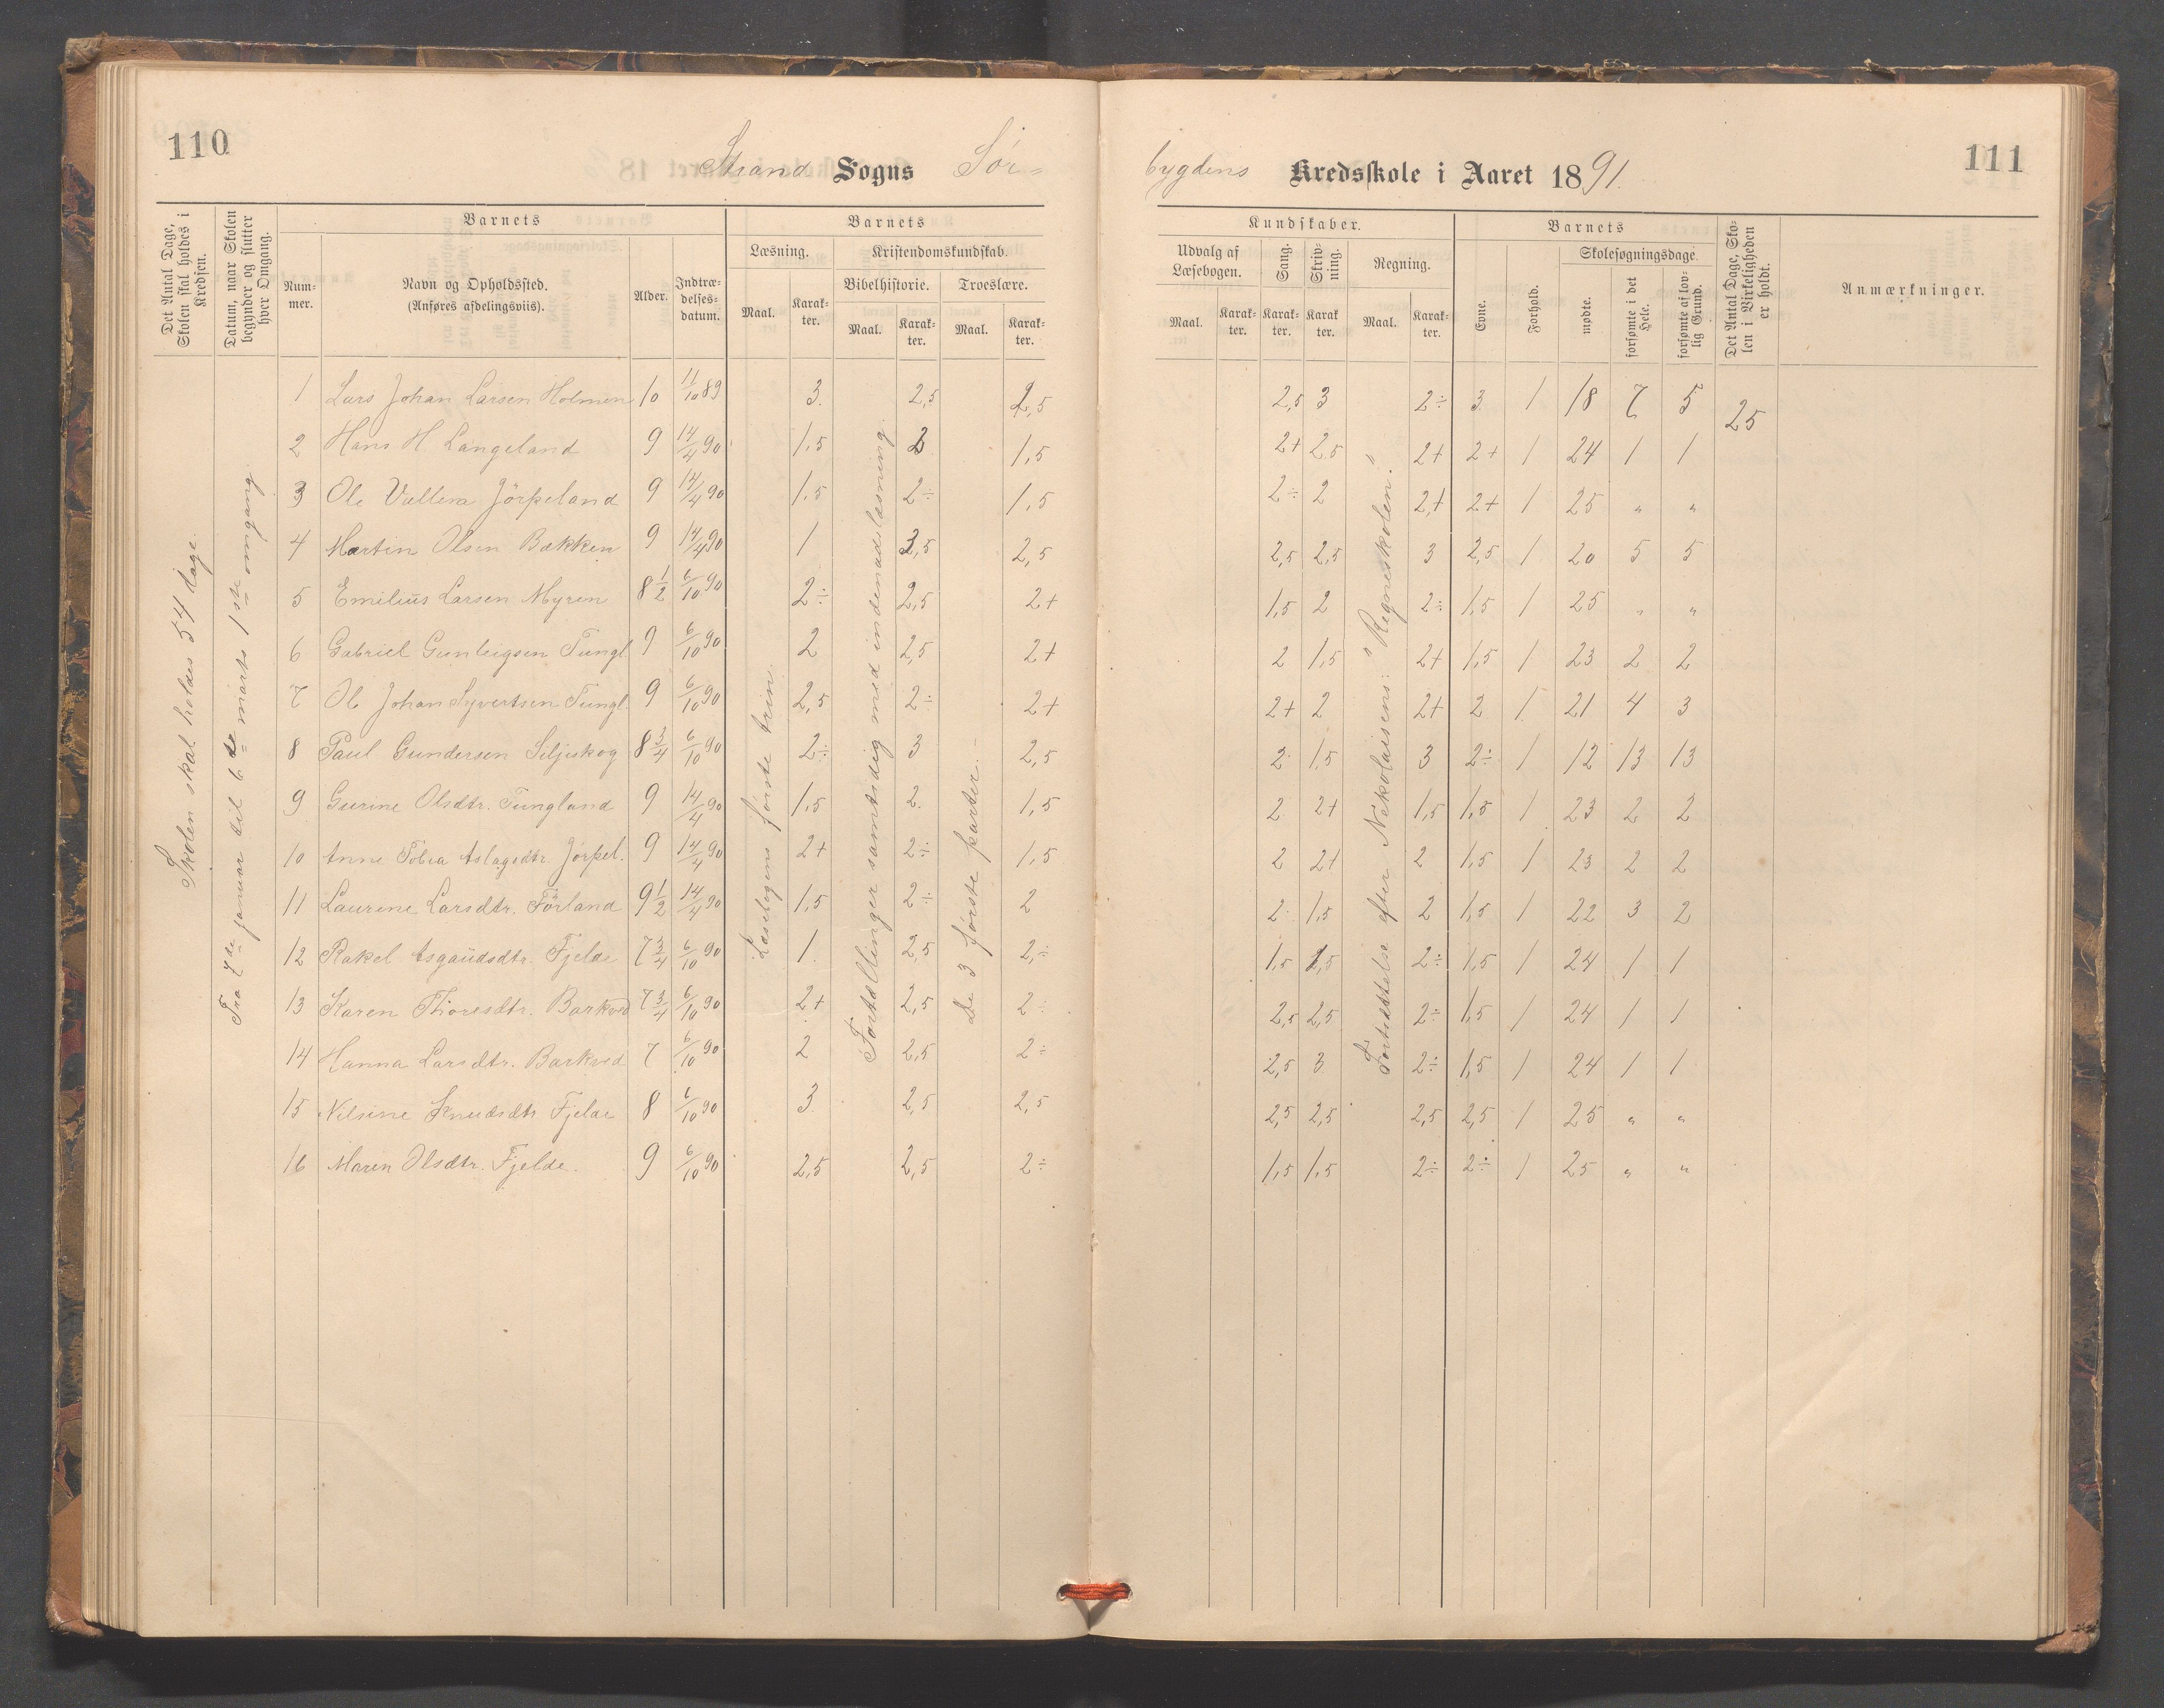 110
Strand Sogns Sør-
bygdens Kredsskole i Aaret 1891.
111
Det Antal Dage, Skolen skal holdes i Kredsen.
Datum, naar Skolen begynder og slutter hver Omgang.
Barnets
Nummer.
Navn og Opholdssted.
(Anføres afdelingsviis).
Alder.
Indtrædelsesdatum.
Barnets
Læsning.
Maal.
Karakter.
Kristendomskundskab.
Bibelhistorie.
Maal.
Karakter.
Troeslære.
Maal.
Karakter.
Kundskaber.
Udvalg af Læsebogen.
Maal.
Karakter.
Sang.
Karakter.
Skrivning.
Karakter.
Regning.
Maal.
Karakter.
Barnets
Evne.
Forhold.
Skolesøgningsdage.
mødte.
forsømte i det Hele.
forsømte af lovlig Grund.
Det Antal Dage, Skolen i Virkeligheden er holdt.
Anmærkninger.
Skolen skal holdes 54 dage.
Fra 7de januar til 6te marts 1ste omgang.
Læsebogens første trin.
Fortællinger samtidig med indenadslæsning.
De 3 første parter.
Fortsættelse efter Nekolaisens: "Regneskolen."
1 Lars Johan Larsen Holmen 10 11/10 89 3. 2,5 2,5 2,5 3 2÷ 3. 1 18 7 5 25
2 Hans H. Langeland 9 14/4 90 1,5 2 1,5 2+ 2,5 2+ 2+ 1 24 1 1
3 Ole Vallera Jörpeland 9 14/4 90 1,5 2÷ 1,5 2÷ 2 2,+ 2+ 1 25 " "
4 Martin Olsen Bækken 9 14/4 90 1 2,5 2,5 2,5 2,5 3 2,5 1 20 5 5
5 Emilius Larsen Myren 8 1/2 6/10 90 2÷ 2,5 2+ 1,5 2 2÷ 1,5 1 25 " "
6 Gabriel Gunleigsen Tungl 9 6/10 90 2 2,5 2+ 2 1,5 2+ 1,5 1 23 2 2
7 Ol Johan Syvertsen Tungl. 9 6/10 90 2,5 2÷ 2+ 2+ 2 2+ 2 1 21 4 3
8 Paul Gundersen Siljeskog 8 3/4 6/10 90 2÷ 3 2,5 2 1,5 3 2÷ 1 12 13 13
9 Gurine Olsdtr. Tungland 9 14/4 90 1,5 2. 1,5 2 2+ 1,5 1,5 1 23 2 2
10 Anne Tobia Aslagsdtr Jörpel. 9 14/4 90 2+ 2÷ 1,5 2 2+ 2 1,5 1 23 2 2
11 Laurine Larsdtr. Förland 9 1/2 14/4 90 1,5 2÷ 2 2 1,5 2 1,5 1 22 3 2
12 Rakel Asgaudsdtr. Fjelde 7 3/4 6/10 90 1. 2,5 2,÷ 1,5 1,5 2÷ 1,5 1 24 1 1
13 Karen Thoresdtr. Barkved 7 3/4 6/10 90 2+ 2,5 2÷ 2,5 2,5 2÷ 1,5 1 24 1 1
14 Hanna Larsdtr. Barkved 7 6/10 90 2 2,5 2÷ 2,5 3 2÷ 1,5 1 24 1 1
15 Nilsine Knudsdtr Fjelde 8 6/10 90 3 2,5 2,5 2,5 2,5 2,5 2,5 1 25 " "
16 Maren Olsdtr. Fjelde. 9 6/10 90 2,5 2,5 2÷ 1,5 1,5 2÷ 2÷ 1 25 " "